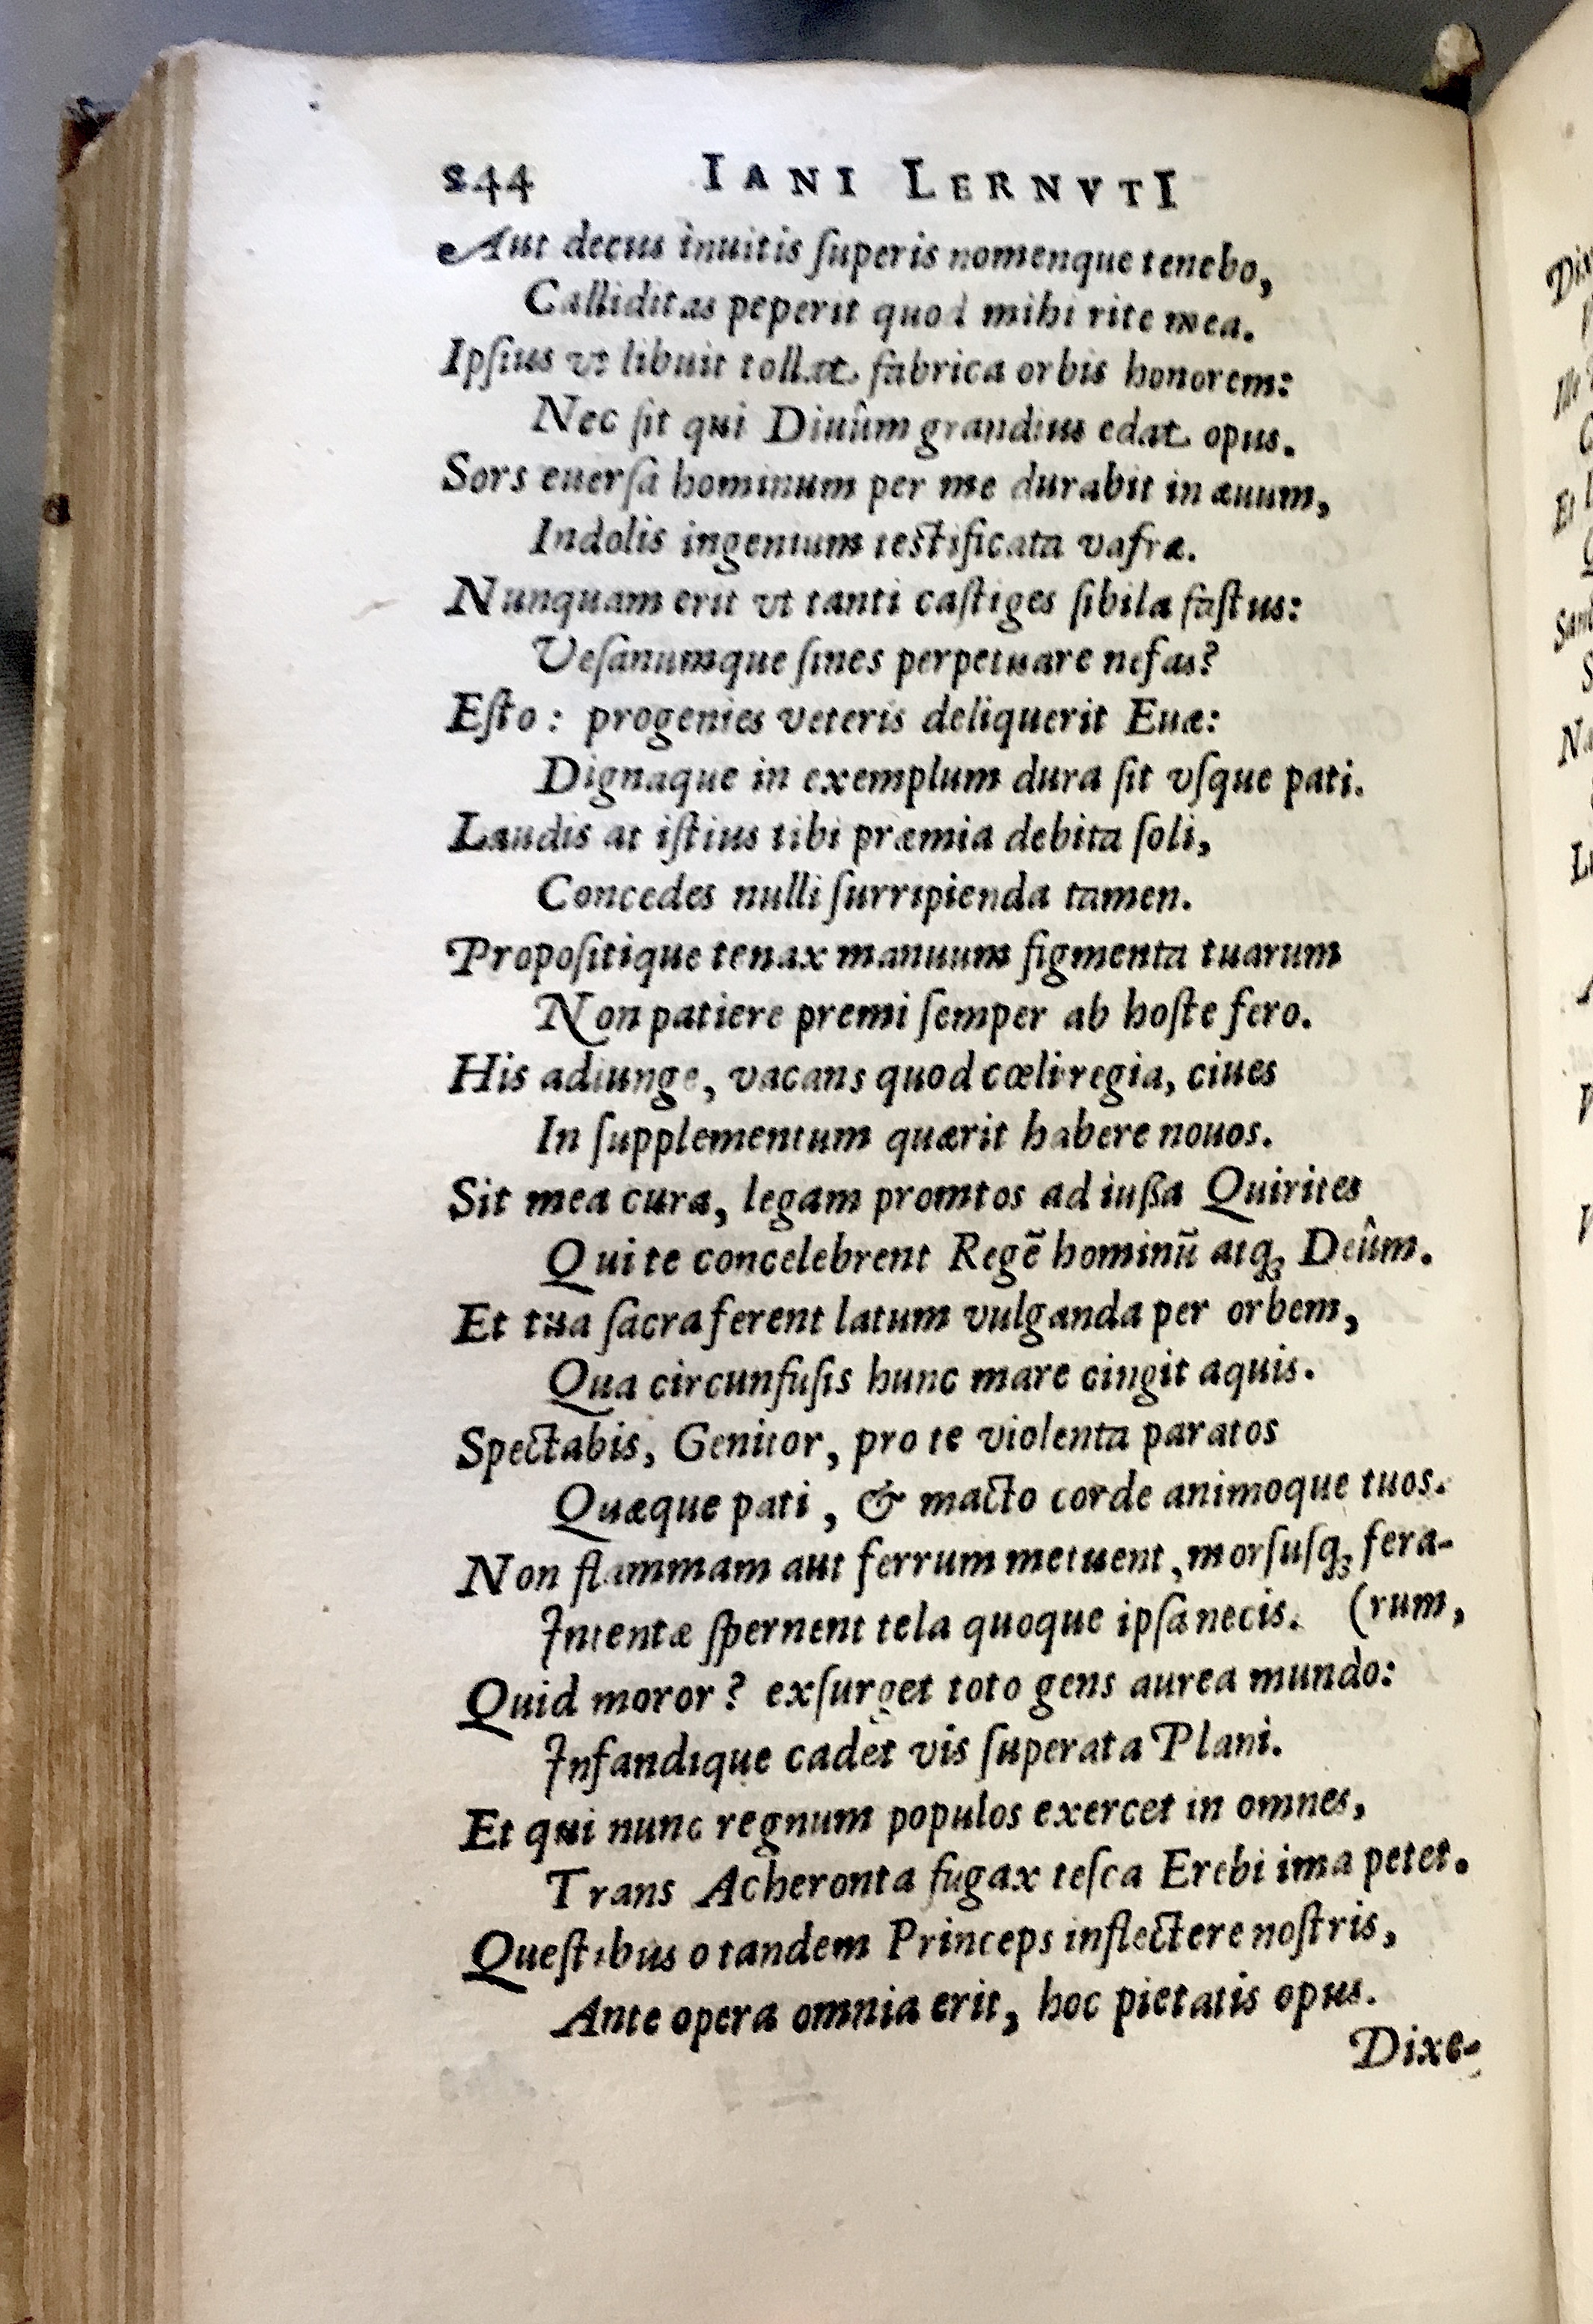 244 IANI LERNVTI
Aut decus inuitis ſuperis nomenque tenebo,
Calliditas peperit quod mihi rite mea.
Ipſius vt libuit tollat fabrica orbis honorem:
Nec ſit qui Diuûm grandius edat opus.
Sors euerſa hominum per me durabit in æuum,
Indolis ingenium teſtificata vafræ.
Nunquam erit vt tanti caſtiges ſibila faſtus:
Veſanumque ſines perpetuare nefas?
Eſto: progenies veteris deliquerit Euæ:
Dignaque in exemplum dura ſit vſque pati.
Laudis at iſtius tibi præmia debita ſoli,
Concedes nulli ſurripienda tamen.
Propoſitique tenax manuum figmenta tuarum
Non patiere premi ſemper ab hoſte fero.
His adiunge, vacans quod cœli regia, ciues
In ſupplementum quærit habere nouos.
Sit mea cura, legam promtos ad iußa Quirites
Qui te concelebrent Regē hominū atq; Deûm.
Et tua ſacra ferent latum vulganda per orbem,
Qua circunfuſis hunc mare cingit aquis.
Spectabis, Genitor, pro te violenta paratos
Quæque pati, & macto corde animoque tuos.
Non flammam aut ferrum metuent, morſuſq; fera-
Intentæ ſpernent tela quoque ipſa necis. (rum,
Quid moror? exſurget toto gens aurea mundo:
Infandique cadet vis ſuperata Plani.
Et qui nunc regnum populos exercet in omnes,
Trans Acheronta fugax teſca Erebi ima petet.
Queſtibus o tandem Princeps inflectere noſtris,
Ante opera omnia erit, hoc pietatis opus.
Dixe-